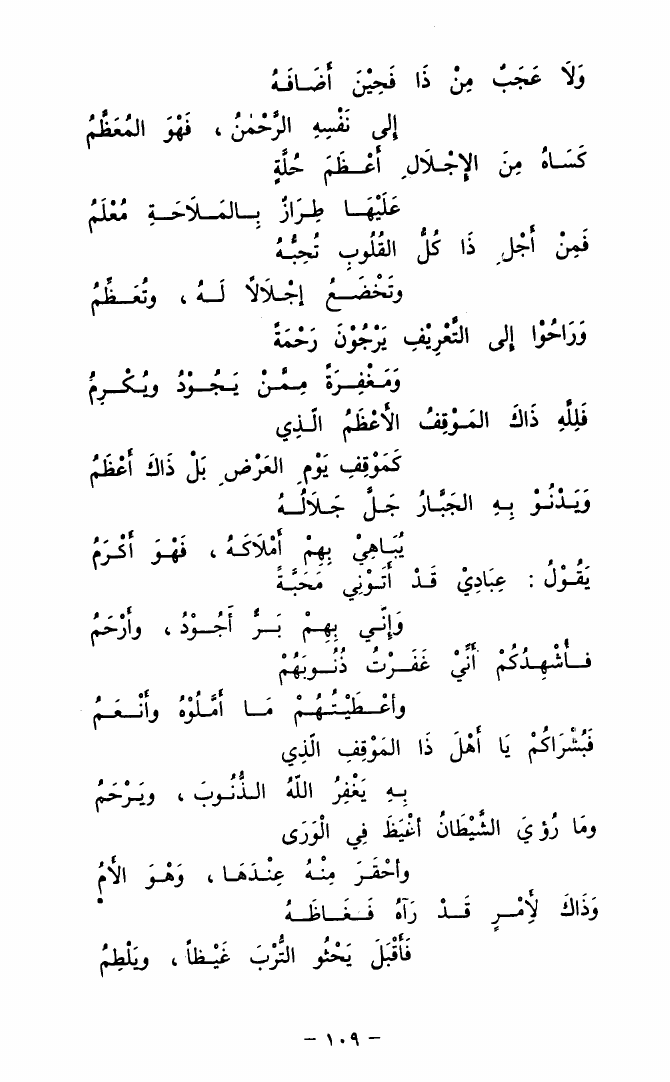 وَلَا عَجَبٌ مِنْ ذَا فَحِيْنَ أَضَافَهُ
إلى نَفْسِهِ الرَّحْمٰنُ ، فَهْوَ المُعَظَّمُ
كَسَاهُ مِنَ الإِجْلَالِ أَعْظَمَ حُلَّةٍ
عَلَيْهَا طِرَازٌ بِالمَلَاحَةِ مُعْلَمُ
فَمِنْ أَجْلِ ذَا كُلُّ القُلُوبِ تُحِبُّهُ
وتَخْضَعُ إجْلَالاً لَهُ ، وتُعَظِّمُ
وَرَاحُوْا إلى التَّعْرِيْفِ يَرْجُونَ رَحْمَةً
وَمَغْفِرَةً مِمَّنْ يَجُوْدُ ويُكْرِمُ
فَلِلَّهِ ذَاكَ المَوْقِفُ الأَعْظَمُ الَّذِي
كَمَوْقِفِ يَوْمِ العَرْضِ بَلْ ذَاكَ أَعْظَمُ
وَيَدْنُوْ بِهِ الجَبَّارُ جَلَّ جَلَالُهُ
يُبَاهِيْ بِهِمْ أَمْلَاكَهُ ، فَهْوَ أَكْرَمُ
يَقُوْلُ : عِبَادِيْ قَدْ أَتَوْنِي مَحَبَّةً
وَإنّي بِهِمْ بَرٌّ أَجُوْدُ ، وأَرْحَمُ
فَأُشْهِدُكُمْ أَنِّيْ غَفَرْتُ ذُنُوبَهُمْ
وأعْطَيْتُهُمْ مَا أَمَّلُوْهُ وأَنْعَمُ
فَبُشْرَاكُمْ يَا أَهْلَ ذَا المَوْقِفِ الَّذِي
بِهِ يَغْفِرُ اللّهُ الذُّنُوبَ ، ويَرْحَمُ
ومَا رُؤيَ الشَّيْطَانُ أغْيَظَ فِي الْوَرَى
وأحْقَرَ مِنْهُ عِنْدَهَا ، وَهْوَ الأَمُ
وَذَاكَ لِأَمْرٍ قَدْ رَآهُ فَغَاظَهُ
فَأَقْبَلَ يَحْثُو التُّرْبَ غَيْظاً ، ويَلْطِمُ
– ١٠٩ –